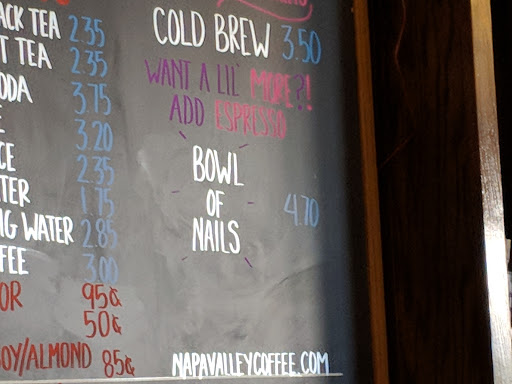 ACK TEA 2.35
T TEA 2.35
ODA 3.75
E 3.20
CE 2.35
TER 1.75
NG WATER 2.85
FEE 3.00
OR 95¢
50¢
OY/ALMOND 85¢
COLD BREW 3.50
WANT A LIL' MORE?!
ADD ESPRESSO
BOWL
OF
NAILS
4.70
NAPAVALLEYCOFFEE.COM